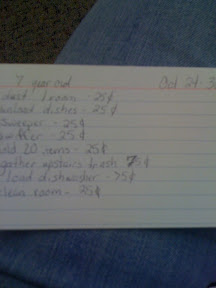 7 year old Oct 24-30
dust 1 room - 25¢
unload dishes - 25¢
Sweeper - 25¢
swiffer - 25¢
old 20 items - 25¢
gather upstairs trash 75¢
load dishwasher - 75¢
clean room - 25¢